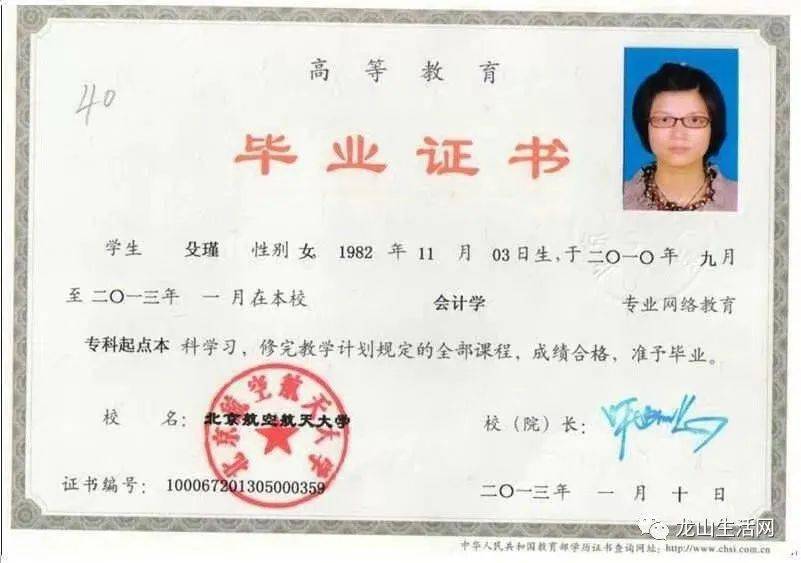 高等教育
40
毕业证书
学生 殳瑾 性别 女, 1982 年 11 月 03 日生,于 二〇一〇年 九月
至 二〇一三年 一 月在本校 会计学 专业网络教育
专科起点本 科学习,修完教学计划规定的全部课程,成绩合格,准予毕业。
校 名: 北京航空航天大学 校(院)长:
北京航空航天大学
证书编号: 100067201305000359 二〇一三年 一 月 十 日
龙山生活网
中华人民共和国教育部学历证书查询网址: http://www.chsi.com.cn